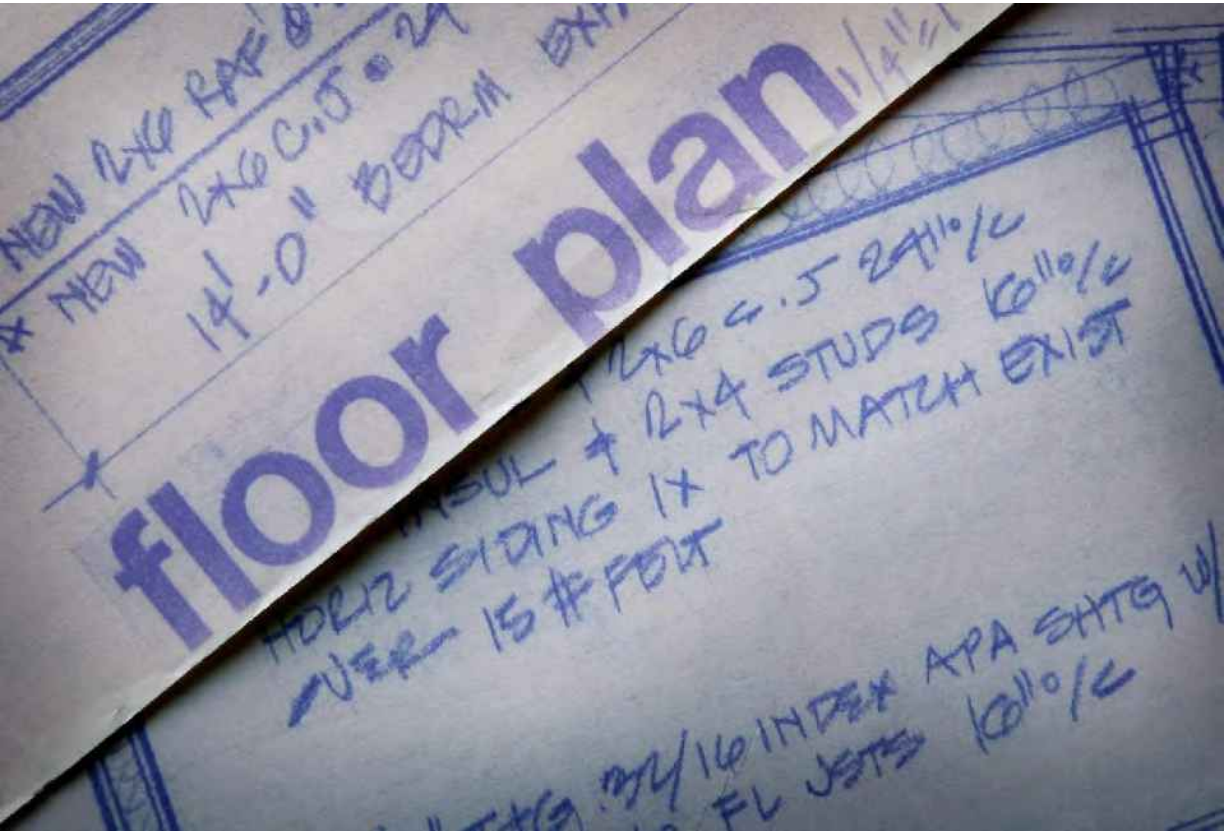 NEW 2x6 RAF @
* NEW 2x6 C.J @ 24
14'-0" BEDRM EX
floor plan
1/4"=1
2x6 C.J 24"o/c
INSUL & 2x4 STUDS 16"o/c
HORIZ SIDING 1X TO MATCH EXIST
OVER 15 # FELT
T&G 32/16 INDEX APA SHTG W/
FL JSTS 16"o/c